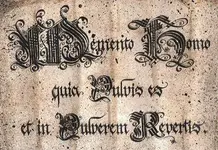 Memento Homo
quia Pulvis es
et in Pulverem Revertis.